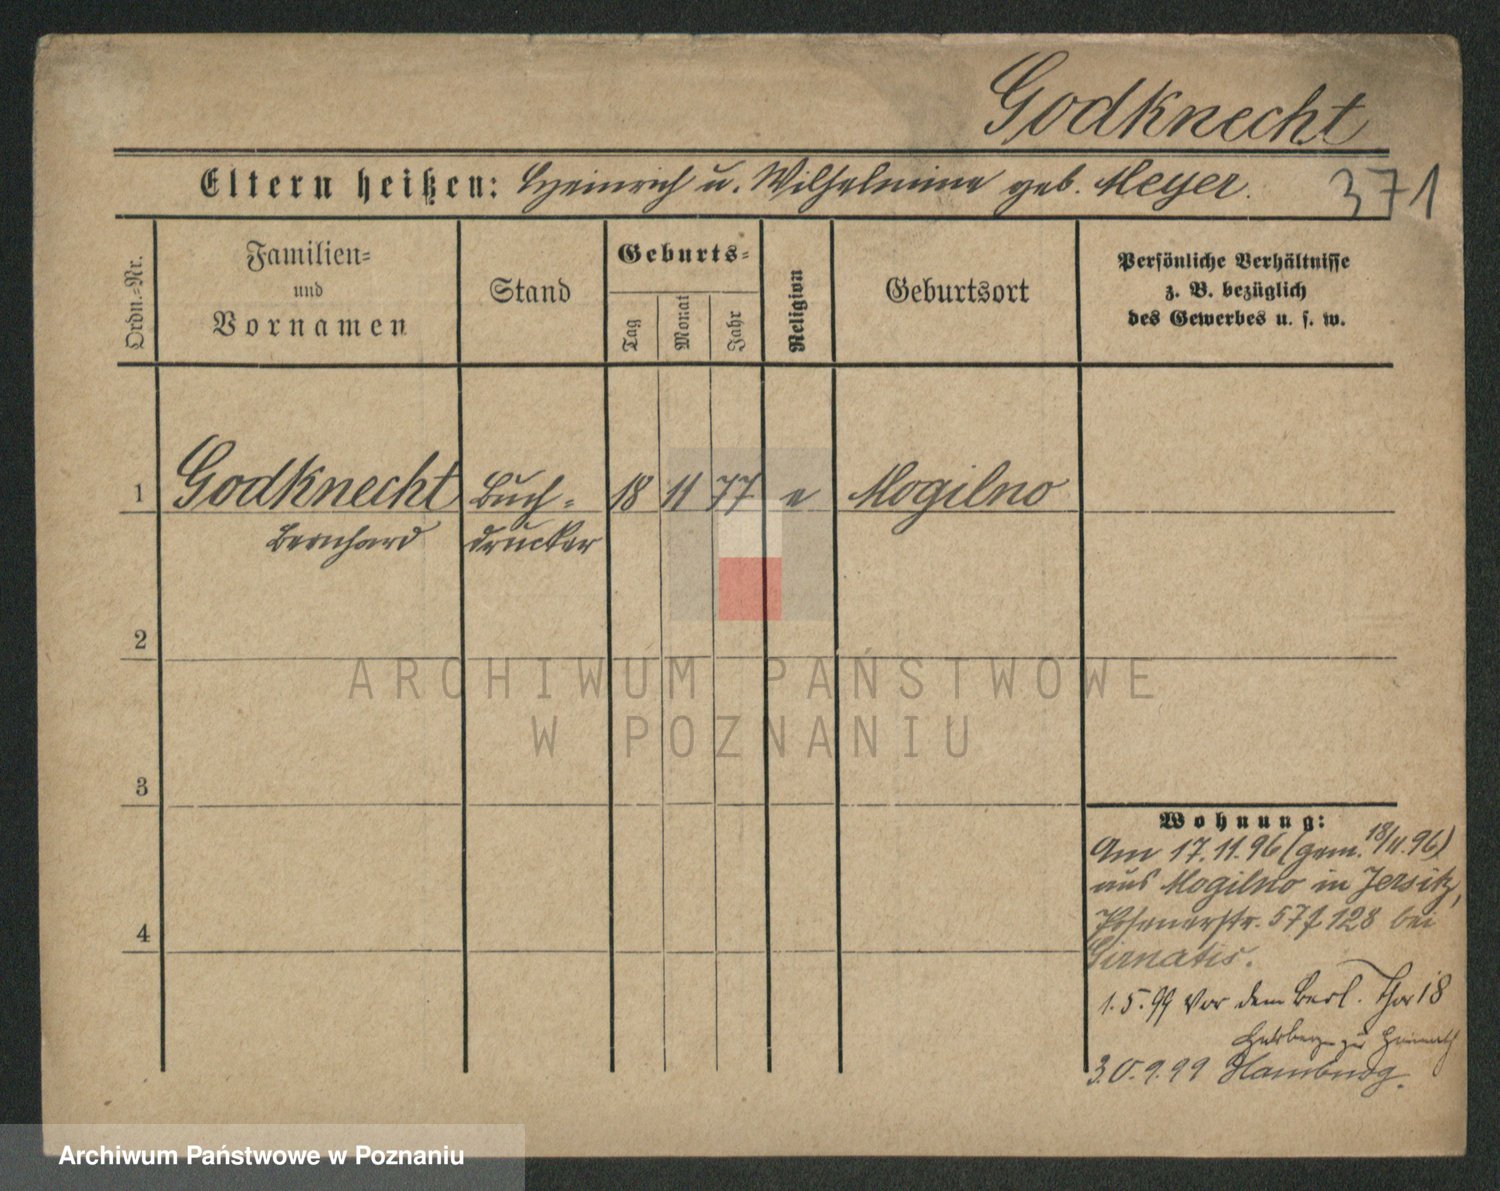 Godknecht
Eltern heißen: Heinrich u. Wilhelmine geb. Meyer.
371
Ordn.-Nr.
Familien-
und
Vornamen
Stand
Geburts-
Tag
Monat
Jahr
Religion
Geburtsort
Persönliche Verhältnisse
z. B. bezüglich
des Gewerbes u. s. w.
1 Godknecht Buch- 18 11 77 e Mogilno
Bernhard drucker
2
3
4
Wohnung:
Am 17.11.96 (gem. 18/11.96)
aus Mogilno in Jersitz,
Posenerstr. 57 128 bei
1.5.99 Vor dem Berl. Thor 18
zu Heimath
30.9.99 Hamburg.
ARCHIWUM PAŃSTWOWE
W POZNANIU
Archiwum Państwowe w Poznaniu